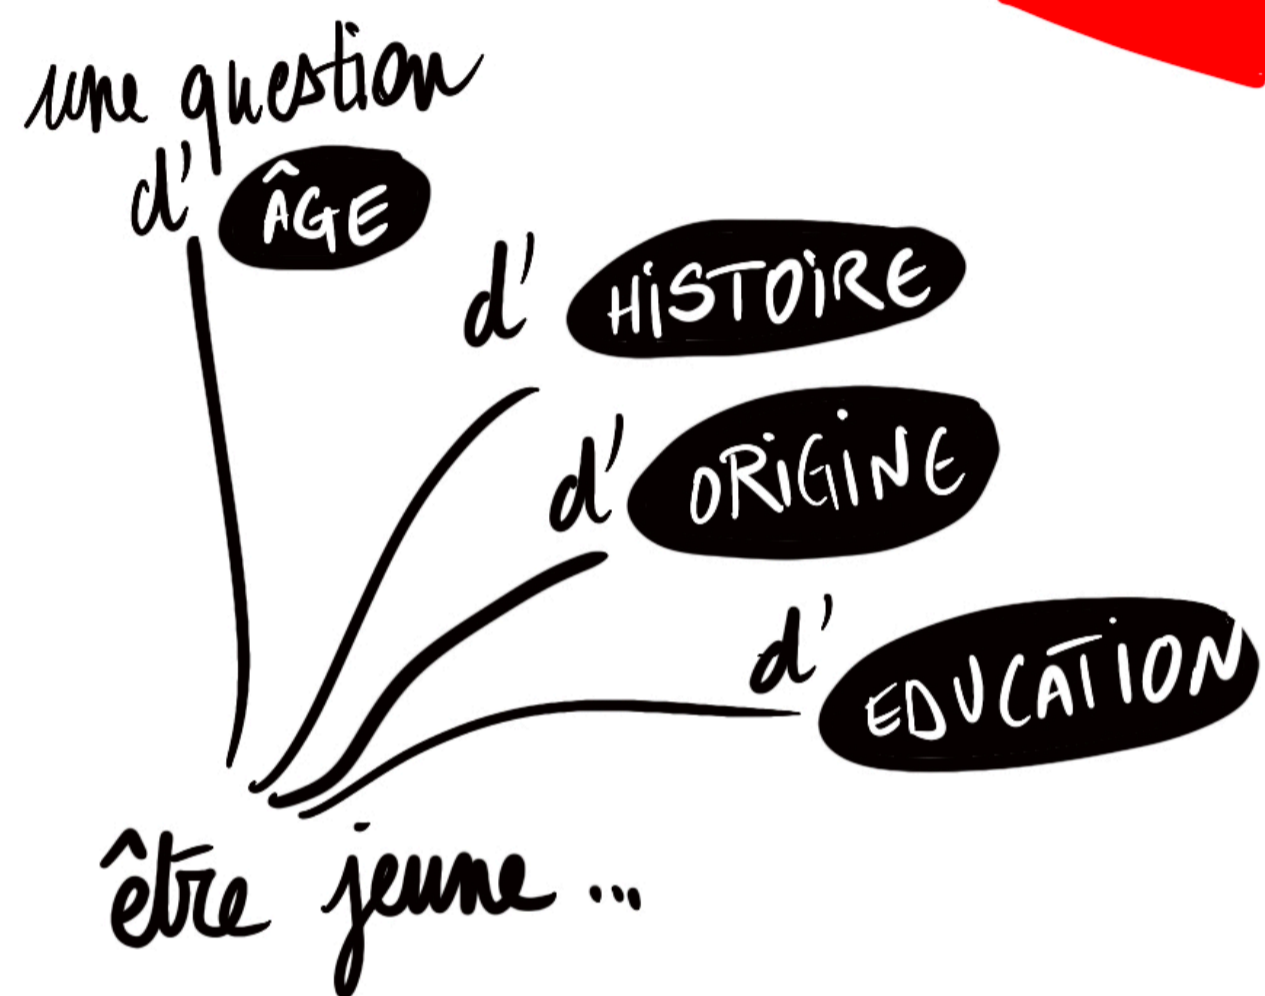 une question
d' ÂGE
d' HiSTOiRE
d' ORiGiNE
d' EDUCATiON
être jeune ...